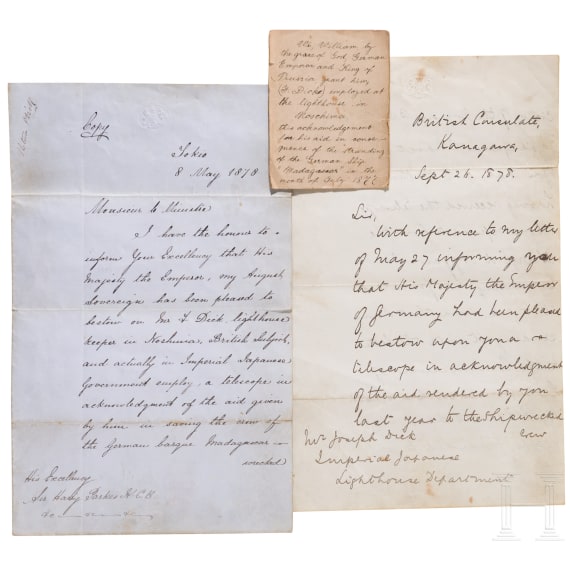 Copy
Tokio
8 May 1878
Monsieur le Ministre
I have the honour to
inform Your Excellency that His
Majesty the Emperor, my August
Sovereign has been pleased to
bestow on Mr J Dick lighthouse
keeper in Noshima, British Subject,
and actually in Imperial Japanese
Government employ, a telescope in
acknowledgment of the aid given
by him in saving the crew of
the German barque Madagascar
wrecked
His Excellency
Sir Harry Parkes K.C.B.
We, William by
the grace of God, German
Emperor and King of
Prussia grant
(J Dick) employed at
the lighthouse in
this acknowledgement
for his aid in
of the stranding
of the German Ship
"Madagascar" in the
month of 1877
British Consulate,
Kanagawa,
Sept 26. 1878.
Sir,
With reference to my letter
of May 27 informing you
that His Majesty the Emperor
of Germany had been pleased
to bestow upon you a
telescope in acknowledgment
of the aid rendered by you
last year to the Shipwrecked
crew
Mr Joseph Dick
Imperial Japanese
Lighthouse Department